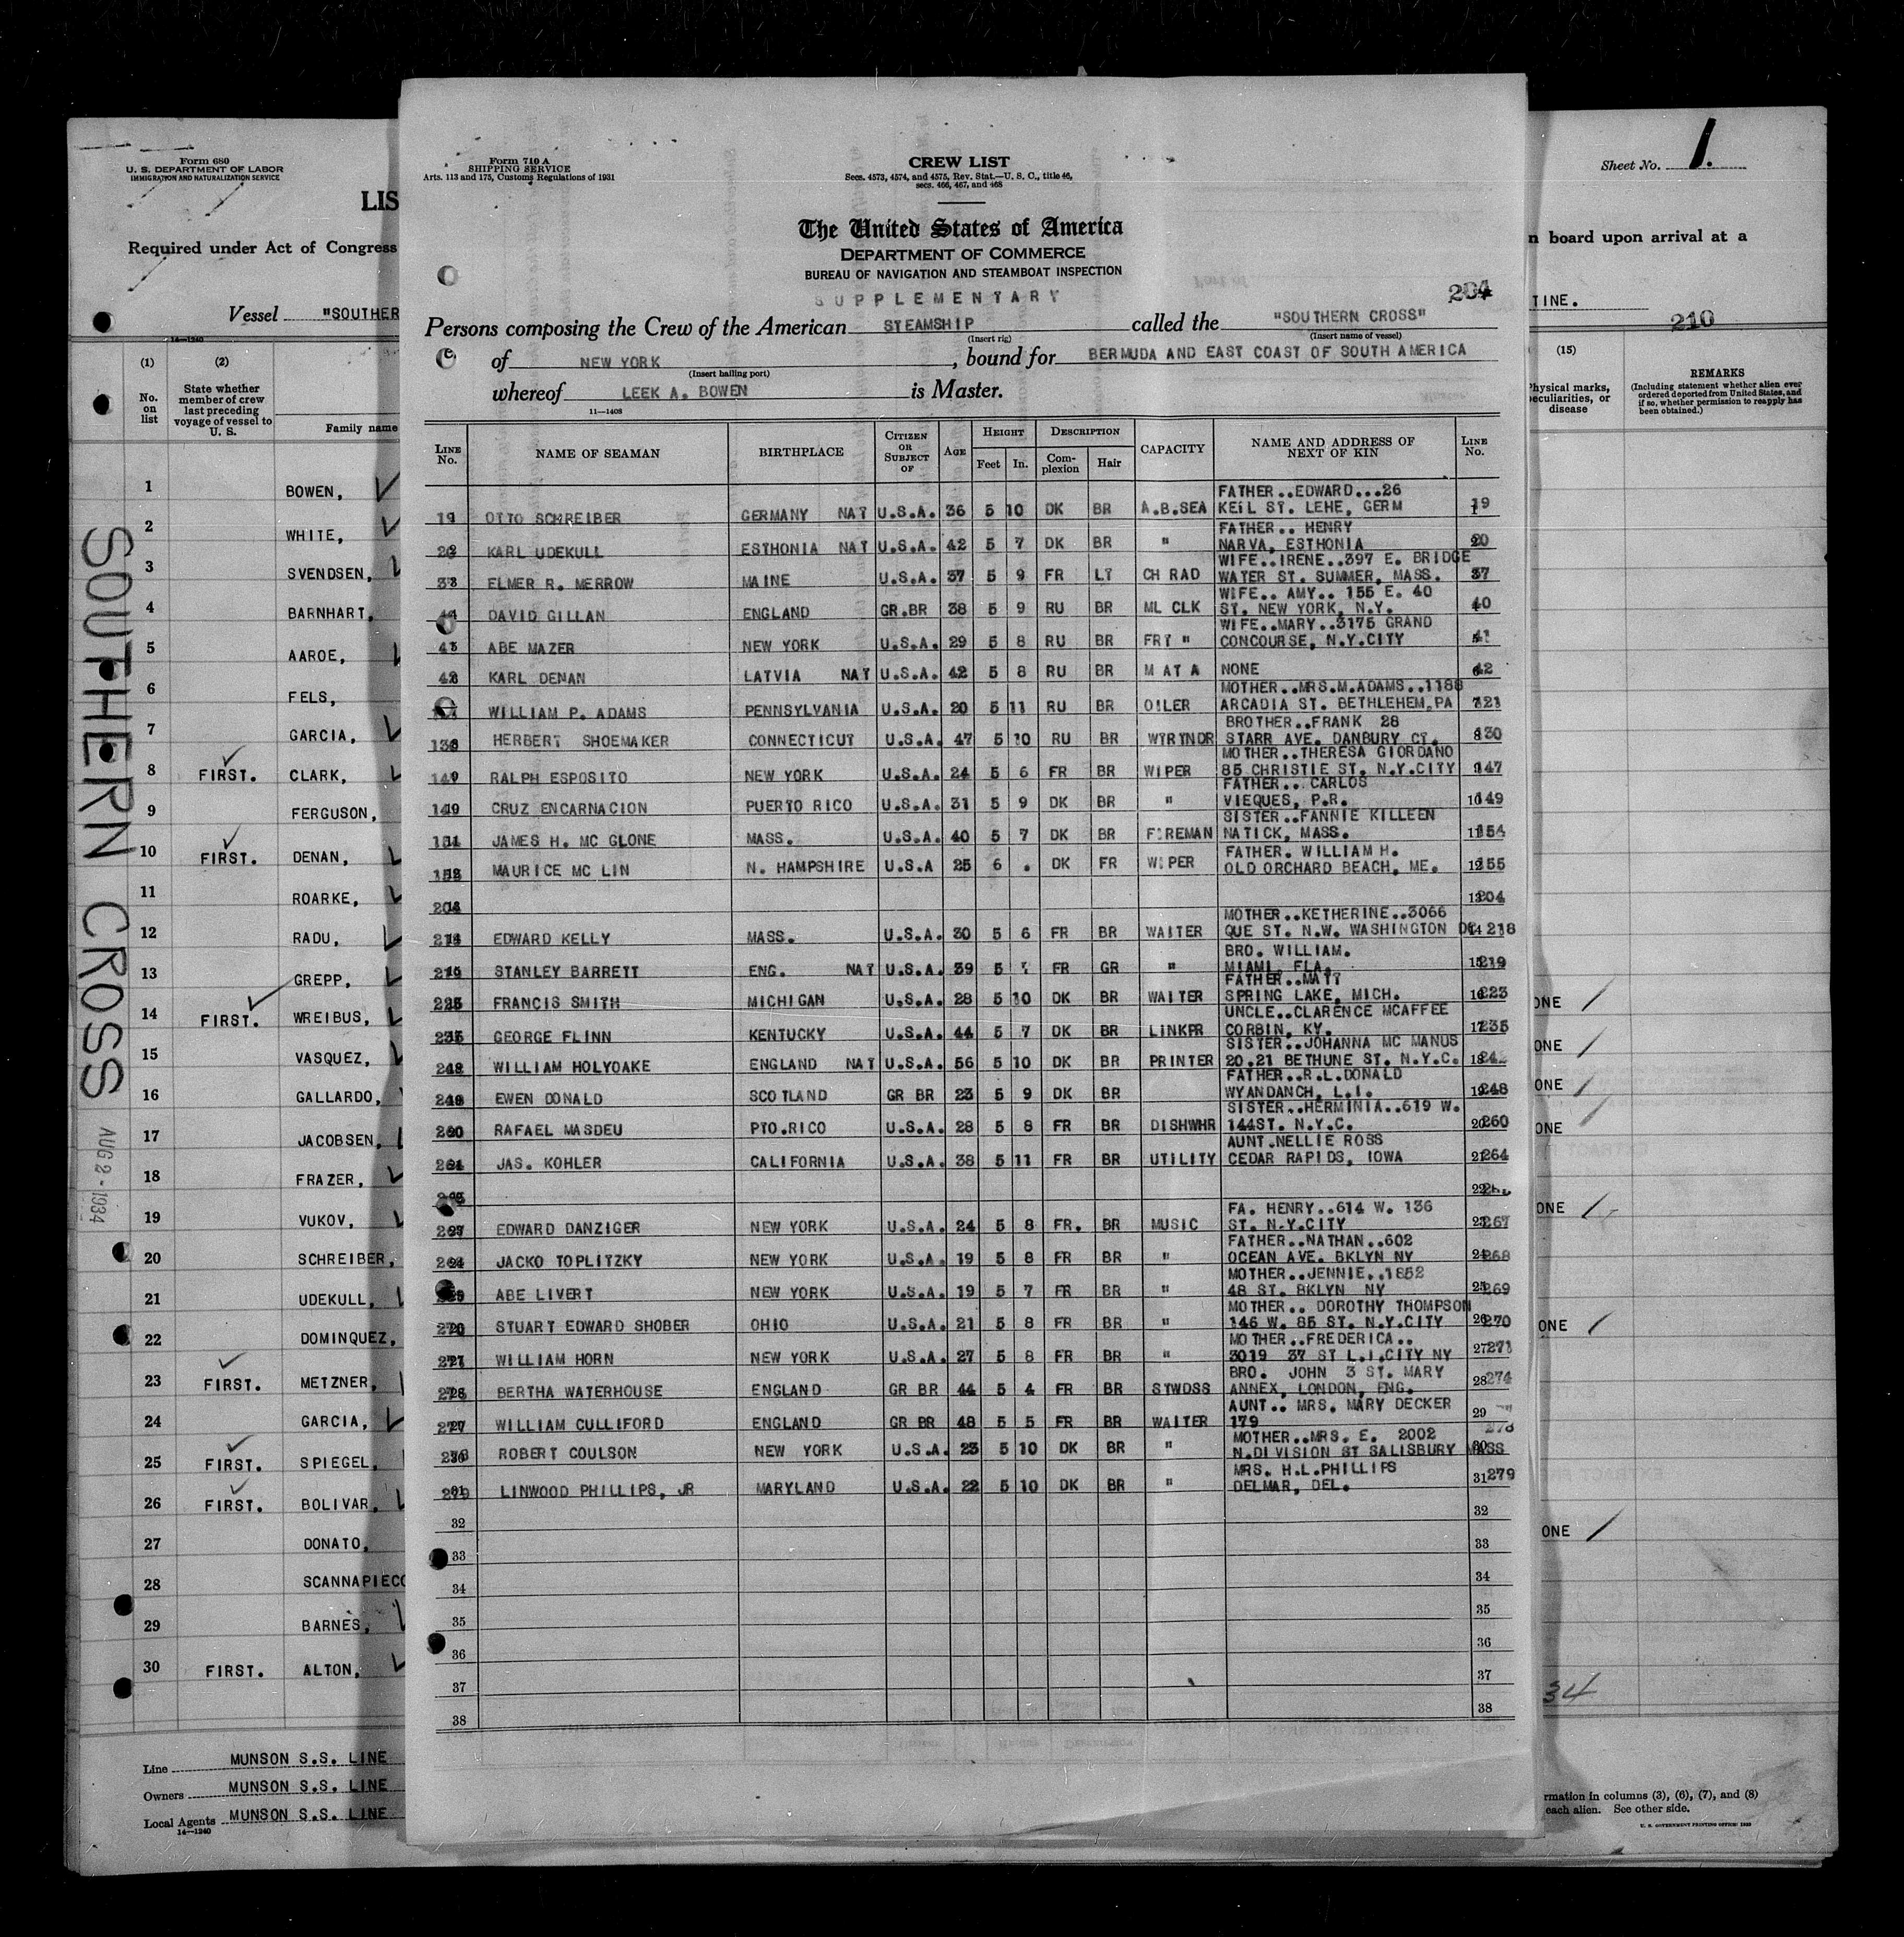 Form 680
U. S. DEPARTMENT OF LABOR
IMMIGRATION AND NATURALIZATION SERVICE
LIS
Required under Act of Congress
Vessel "SOUTHER
14—1240
(1) (2)
No. on list
State whether member of crew last preceding voyage of vessel to U. S.
Family name
1 BOWEN,
2 WHITE,
3 SVENDSEN,
4 BARNHART,
5 AAROE,
6 FELS,
7 GARCIA,
8 FIRST. CLARK,
9 FERGUSON,
10 FIRST. DENAN,
11 ROARKE,
12 RADU,
13 GREPP,
14 FIRST. WREIBUS,
15 VASQUEZ,
16 GALLARDO,
17 JACOBSEN,
18 FRAZER,
19 VUKOV,
20 SCHREIBER,
21 UDEKULL,
22 DOMINQUEZ,
23 FIRST. METZNER,
24 GARCIA,
25 FIRST. SPIEGEL,
26 FIRST. BOLIVAR,
27 DONATO,
28 SCANNAPIECO
29 BARNES,
30 FIRST. ALTON,
SOUTHERN CROSS
AUG 2 - 1934
Line MUNSON S.S. LINE
Owners MUNSON S.S. LINE
Local Agents MUNSON S.S. LINE
14—1240
Form 710 A
SHIPPING SERVICE
Arts. 113 and 175, Customs Regulations of 1931
CREW LIST
Secs. 4573, 4574, and 4575, Rev. Stat.—U. S. C., title 46,
secs. 466, 467, and 468
The United States of America
DEPARTMENT OF COMMERCE
BUREAU OF NAVIGATION AND STEAMBOAT INSPECTION
SUPPLEMENTARY
204
Persons composing the Crew of the American STEAMSHIP called the "SOUTHERN CROSS"
(Insert rig) (Insert name of vessel)
of NEW YORK, bound for BERMUDA AND EAST COAST OF SOUTH AMERICA
(Insert hailing port)
whereof LEEK A. BOWEN is Master.
11—1408
LINE No. NAME OF SEAMAN BIRTHPLACE CITIZEN OR SUBJECT OF AGE HEIGHT Feet In. DESCRIPTION Complexion Hair CAPACITY NAME AND ADDRESS OF NEXT OF KIN LINE No.
FATHER..EDWARD...26
19 OTTO SCHREIBER GERMANY NAT U.S.A. 36 5 10 DK BR A.B.SEA KEIL ST. LEHE, GERM 19
FATHER.. HENRY
KARL UDEKULL ESTHONIA NAT U.S.A. 42 5 7 DK BR " NARVA, ESTHONIA 20
WIFE..IRENE..397 E. BRIDGE
ELMER R. MERROW MAINE U.S.A. 37 5 9 FR LT CH RAD WATER ST. SUMMER, MASS. 37
WIFE.. AMY.. 155 E. 40
DAVID GILLAN ENGLAND GR.BR 38 5 9 RU BR ML CLK ST. NEW YORK, N.Y. 40
WIFE..MARY..3175 GRAND
ABE MAZER NEW YORK U.S.A. 29 5 8 RU BR FRT " CONCOURSE, N.Y.CITY 41
KARL DENAN LATVIA NAT U.S.A. 42 5 8 RU BR M AT A NONE 42
MOTHER..MRS.M.ADAMS..1188
WILLIAM P. ADAMS PENNSYLVANIA U.S.A. 20 5 11 RU BR OILER ARCADIA ST. BETHLEHEM,PA 121
BROTHER..FRANK 28
HERBERT SHOEMAKER CONNECTICUT U.S.A. 47 5 10 RU BR WTRTNDR STARR AVE. DANBURY CT. 130
MOTHER..THERESA GIORDANO
RALPH ESPOSITO NEW YORK U.S.A. 24 5 6 FR BR WIPER 85 CHRISTIE ST. N.Y.CITY 147
FATHER.. CARLOS
149 CRUZ ENCARNACION PUERTO RICO U.S.A. 31 5 9 DK BR " VIEQUES, P.R. 149
SISTER..FANNIE KILLEEN
JAMES H. MC GLONE MASS. U.S.A. 40 5 7 DK BR FOREMAN NATICK, MASS. 154
FATHER. WILLIAM H.
MAURICE MC LIN N. HAMPSHIRE U.S.A 25 6 . DK FR WIPER OLD ORCHARD BEACH, ME. 155
204 204
MOTHER..KETHERINE..3066
EDWARD KELLY MASS. U.S.A. 30 5 6 FR BR WAITER QUE ST. N.W. WASHINGTON DC 218
BRO. WILLIAM.
STANLEY BARRETT ENG. NAT U.S.A. 39 5 FR GR " MIAMI, FLA. 219
FATHER..MATT
FRANCIS SMITH MICHIGAN U.S.A. 28 5 10 DK BR WAITER SPRING LAKE, MICH. 223
UNCLE..CLARENCE MCAFFEE
GEORGE FLINN KENTUCKY U.S.A. 44 5 7 DK BR LINKPR CORBIN, KY. 235
SISTER..JOHANNA MC MANUS
WILLIAM HOLYOAKE ENGLAND NAT U.S.A. 56 5 10 DK BR PRINTER 20.21 BETHUNE ST. N.Y.C.
FATHER..R.L.DONALD
EWEN DONALD SCOTLAND GR BR 23 5 9 DK BR WYANDANCH, L.I. 248
SISTER..HERMINIA..619 W.
260 RAFAEL MASDEU PTO.RICO U.S.A. 28 5 8 FR BR DISHWHR 144ST. N.Y.C. 260
AUNT.NELLIE ROSS
264 JAS. KOHLER CALIFORNIA U.S.A. 38 5 11 FR BR UTILITY CEDAR RAPIDS, IOWA 264
22
FA. HENRY..614 W. 136
267 EDWARD DANZIGER NEW YORK U.S.A. 24 5 8 FR. BR MUSIC ST. N.Y.CITY 267
FATHER..NATHAN..602
JACKO TOPLITZKY NEW YORK U.S.A. 19 5 8 FR BR " OCEAN AVE. BKLYN NY 268
MOTHER..JENNIE..1852
ABE LIVERT NEW YORK U.S.A. 19 5 7 FR BR " 48 ST. BKLYN NY 269
MOTHER.. DOROTHY THOMPSON
270 STUART EDWARD SHOBER OHIO U.S.A. 21 5 8 FR BR " 146 W. 85 ST. N.Y.CITY 270
MOTHER..FREDERICA..
271 WILLIAM HORN NEW YORK U.S.A. 27 5 8 FR BR " 3019 37 ST L.I.CITY NY 27 271
BRO. JOHN 3 ST. MARY
BERTHA WATERHOUSE ENGLAND GR BR 44 5 4 FR BR STWDSS ANNEX, LONDON, ENG. 28 274
AUNT.. MRS. MARY DECKER
WILLIAM CULLIFORD ENGLAND GR BR 48 5 5 FR BR WAITER 179 29
MOTHER..MRS. E. 2002
ROBERT COULSON NEW YORK U.S.A. 23 5 10 DK BR " N.DIVISION ST SALISBURY MASS 278
MRS. H.L.PHILLIPS
279 LINWOOD PHILLIPS, JR MARYLAND U.S.A. 22 5 10 DK BR " DELMAR, DEL. 31 279
32 32
33 33
34 34
35 35
36 36
37 37
38 38
Sheet No. 1.
n board upon arrival at a
TINE.
210
(15)
Physical marks, peculiarities, or disease
REMARKS
(Including statement whether alien ever ordered deported from United States, and if so, whether permission to reapply has been obtained.)
ONE
ONE
ONE
ONE
ONE
ONE
ONE
34
rmation in columns (3), (6), (7), and (8)
each alien. See other side.
U. S. GOVERNMENT PRINTING OFFICE: 1933